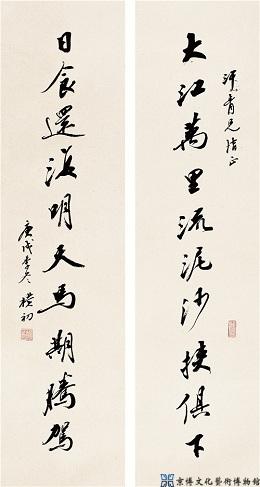 大江萬里流泥沙挾俱下
青兄指正
日食還復明天馬期騰駕
庚戌季冬 樸初
京博文化藝術博物館